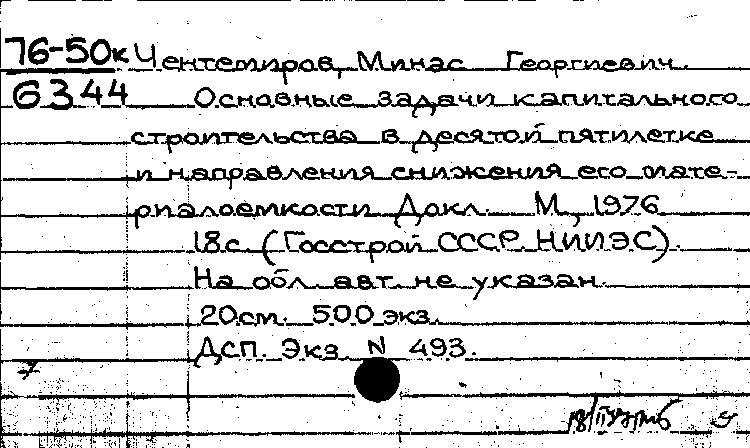 76-50к Чентемиров, Минас Георгиевич.
6344 Основные задачи капитального
строительства в десятой пятилетке
и направления снижения его мате-
риалоемкости Докл. М., 1976
18с. (Госстрой СССР. НИИЭС).
На обл. авт. не указан.
20см. 500 экз.
ДСП. Экз. N 493.